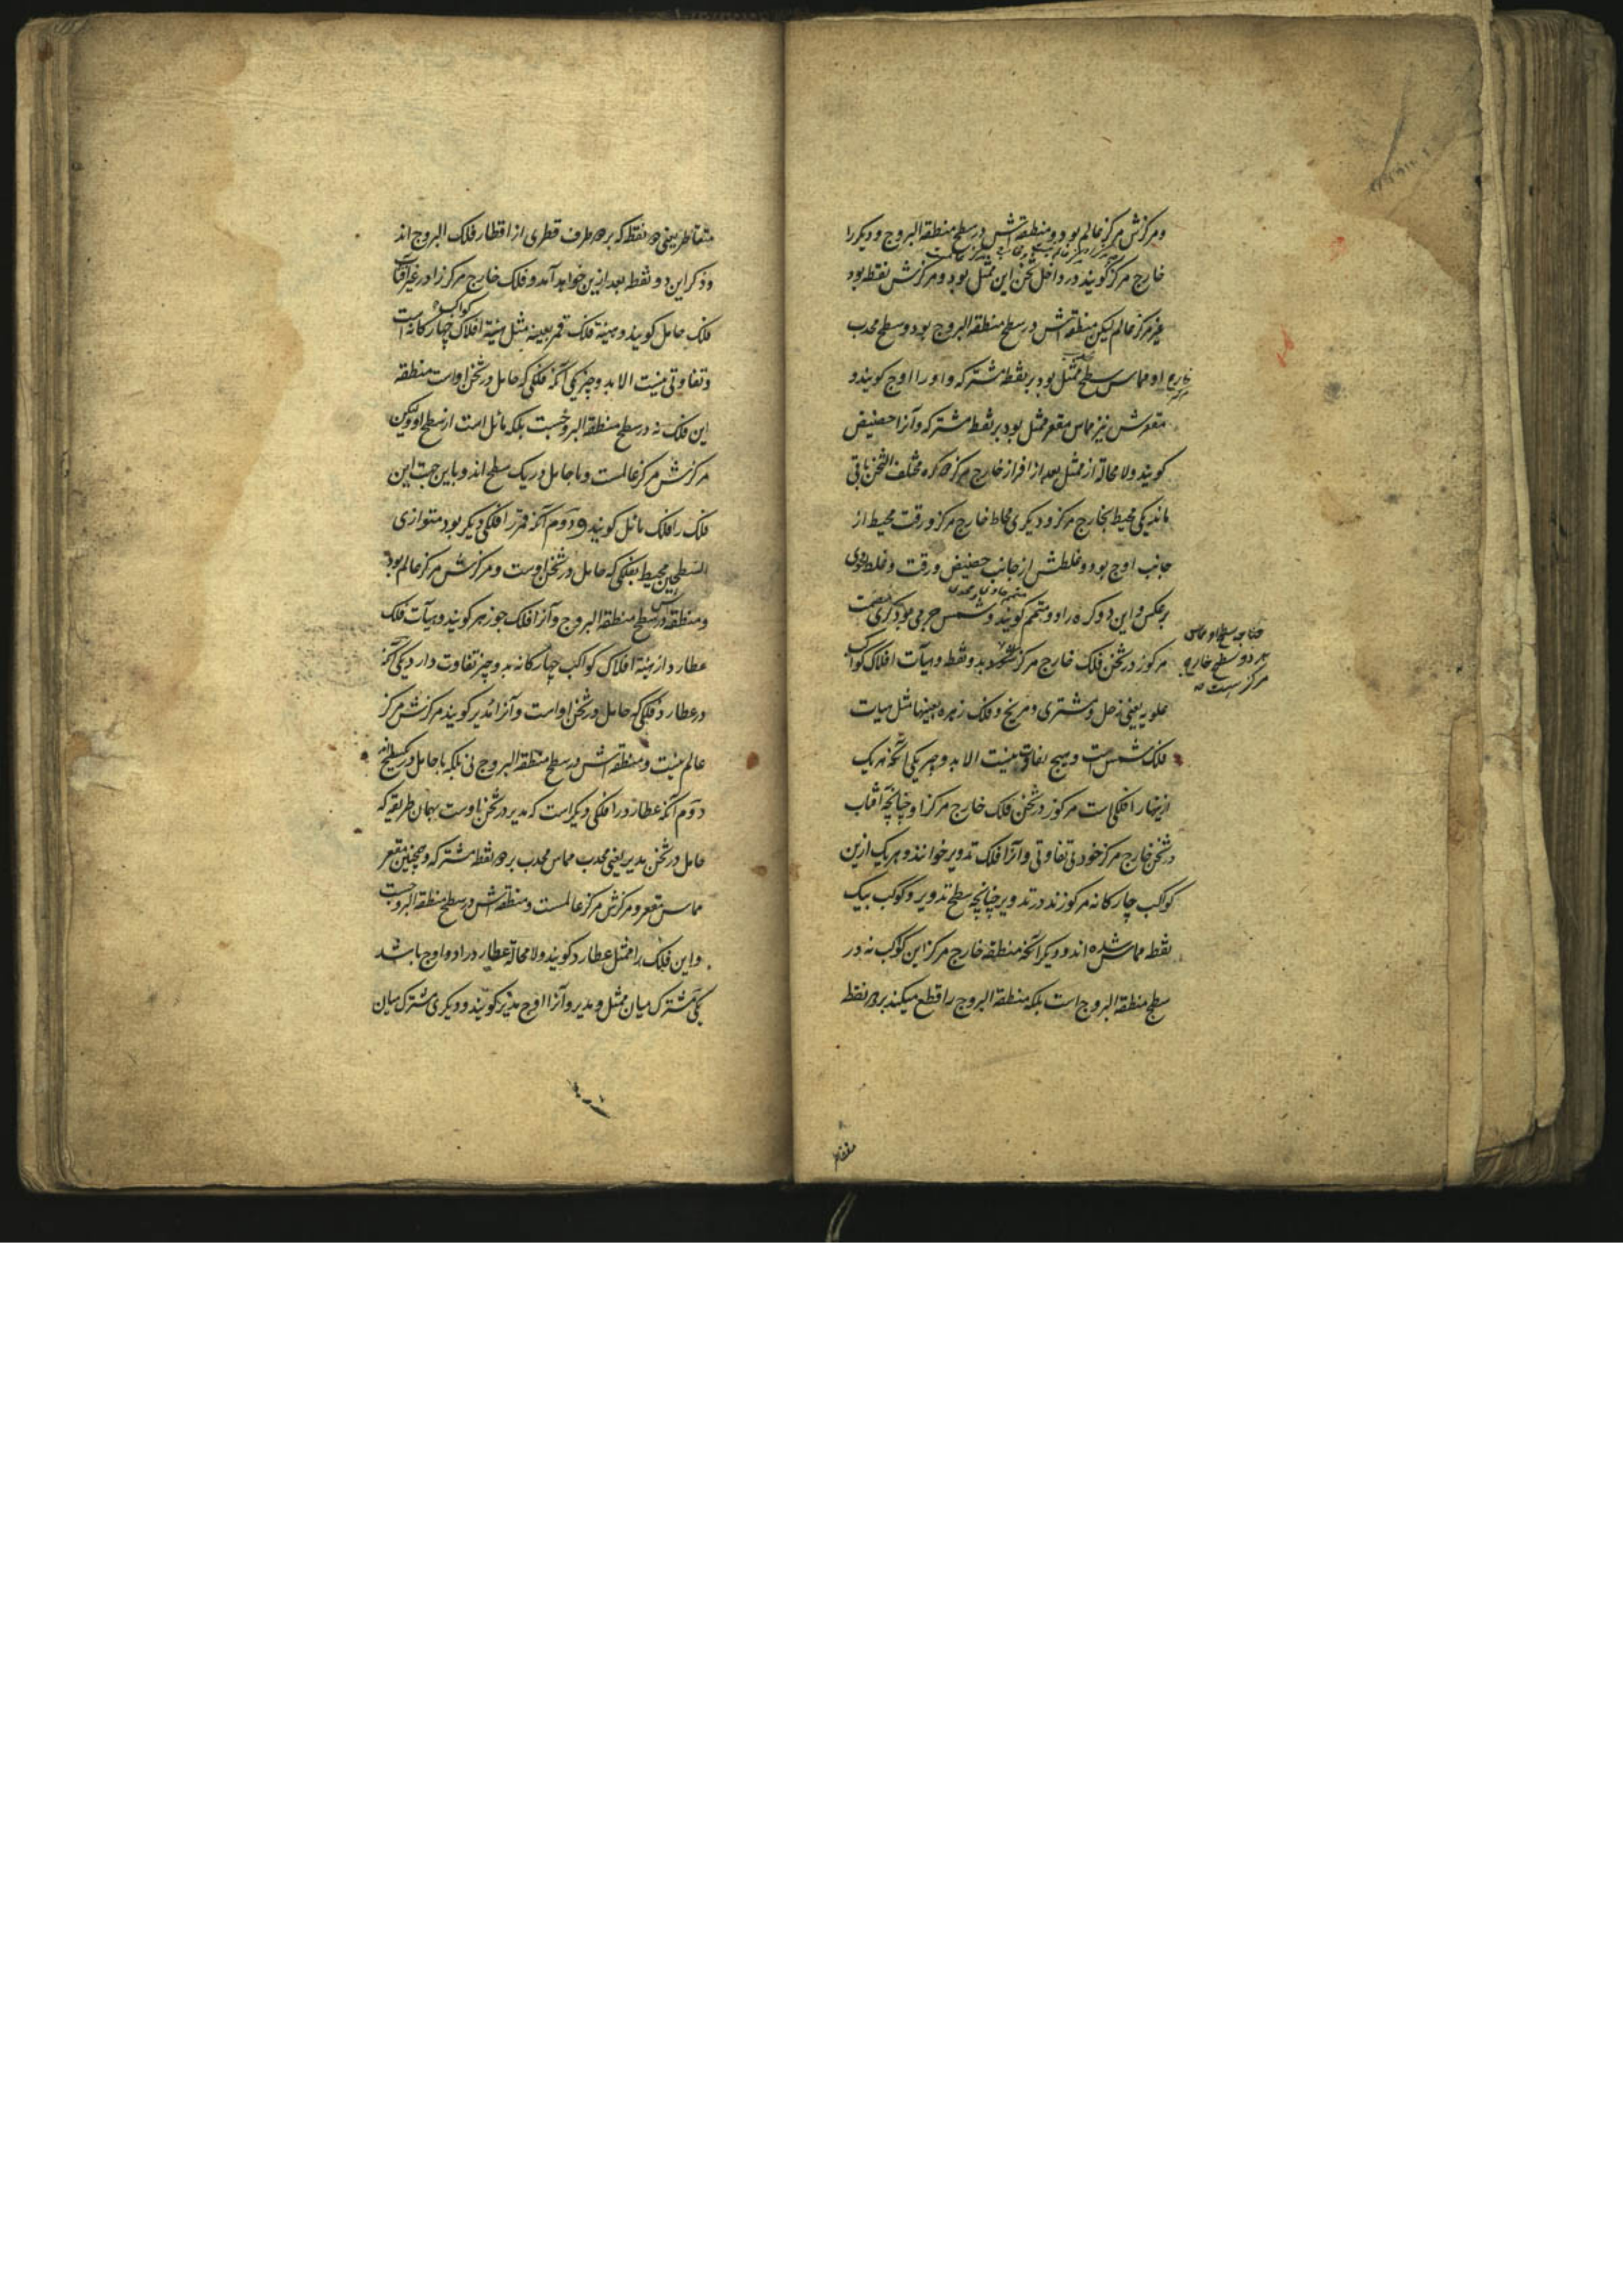 ومرکزش مرکز عالم بود و منطقه‌اش در سطح منطقة البروج و دیکر را
خارج مرکز کویند در داخل ثخن این ممثل بود و مرکزش نقطه بود
غیر مرکز عالم لیکن منطقه‌اش در سطح منطقة البروج بود و سطح محدب
او مماس سطح ممثل بود بر نقطه مشترکه و او را اوج کویند و
مقعرش نیز مماس مقعر ممثل بود بر نقطه مشترکه و آنرا حضیض
کویند ولا محاله از ممثل بعد از افراز خارج مرکز دو کره مختلف الثخن باقی
ماند یکی محیط بخارج مرکز و دیکری محاط خارج مرکز و رقت محیط از
جانب اوج بود و غلظتش از جانب حضیض و رقت و غلظ محوی
برعکس و این دو کره را دو متمم کویند و شمس جرمی بود کری مصمت
مرکوز در ثخن فلک خارج مرکز بدو نقطه و هیآت افلاک کواکب
علویه یعنی زحل و مشتری و مریخ و فلک زهره بعینها مثل هیات
فلک شمس است و هیچ تفاوت نیست الا بدو چیز یکی آنکه هر یک
ازینها را فلکی است مرکوز در ثخن فلک خارج مرکز او چنانچه آفتاب
در ثخن خارج مرکز خود بی تفاوتی و آنرا فلک تدویر خوانند و هر یک ازین
کواکب چارکانه مرکوزند در تدویر چنانچه سطح تدویر و کوکب بیک
نقطه مماس شده‌اند و دیکر آنکه منطقه خارج مرکز این کوکب نه در
سطح منطقة البروج است بلکه منطقة البروج را قطع میکند بر دو نقطه
خارج مرکز
چنانچه سطح او مماس
هر دو سطح خارج
مرکز است
متقاطر یعنی دو نقطه که بر دو طرف قطری از اقطار فلک البروج اند
و ذکر این دو نقطه بعد ازین خواهد آمد و فلک خارج مرکز را در غیر آفتاب
فلک حامل کویند و هیئة فلک قمر بعینه مثل هیئة افلاک کواکب چهارکانه است
و تفاوتی نیست الا بدو چیز یکی آنکه فلکی که حامل در ثخن اوست منطقه
این فلک نه در سطح منطقة البروجست بلکه مائل است از سطح او ولیکن
مرکزش مرکز عالمست و با حامل در یک سطح اند و باین جهت این
فلک را فلک مائل کویند و دوم آنکه قمر را فلکی دیکر بود متوازی
السطحین محیط بفلکی که حامل در ثخن اوست و مرکزش مرکز عالم بود
و منطقه‌اش در سطح منطقة البروج و آنرا فلک جوزهر کویند و هیآت فلک
عطارد از هیئة افلاک کواکب چهارکانه بدو چیز تفاوت دارد یکی آنکه
در عطارد فلکی که حامل در ثخن اوست و آنرا مدیر کویند مرکزش مرکز
عالم نیست و منطقه‌اش در سطح منطقة البروج نی بلکه با حامل در یکسطح اند
دوم آنکه عطارد را فلکی دیکر است که مدیر در ثخن اوست بهمان طریقه که
حامل در ثخن مدیر یعنی محدب مماس محدب بر نقطه مشترکه و همچنین مقعر
مماس مقعر و مرکزش مرکز عالمست و منطقه‌اش در سطح منطقة البروجست
و این فلک را ممثل عطارد کویند ولا محاله عطارد را دو اوج باشد
یکی مشترک میان ممثل و مدیر و آنرا اوج مدیر کویند و دیکری مشترک میان